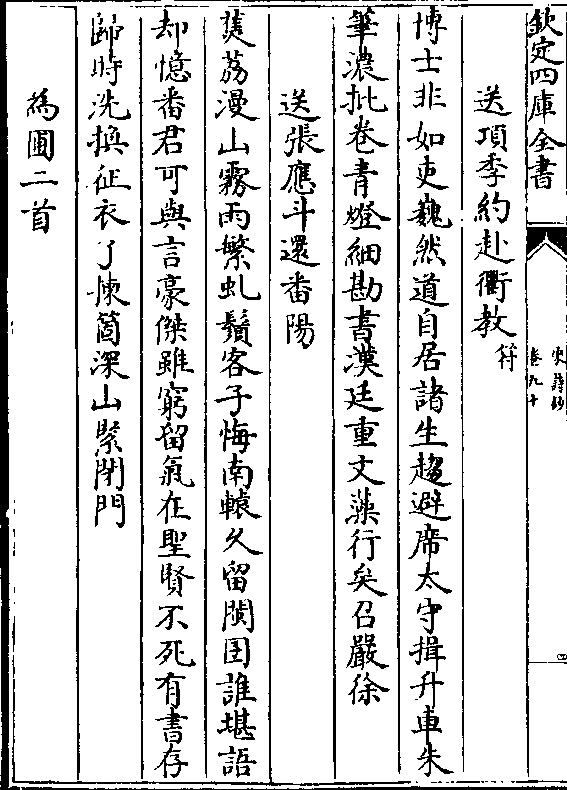 欽定四庫全書
宋詩鈔
卷九十
送項季約赴衢教 符
博士非如吏巍然道自居諸生趨避席太守揖升車朱
筆濃批卷青燈細勘書漢廷重文藻行矣召嚴徐
送張應斗還番陽
荔漫山霧雨繁虬鬚客子悔南轅久留閩囝誰堪語
却憶番君可與言豪傑雖窮留氣在聖賢不死有書存
歸時洗換征衣了揀箇深山緊閉門
為圃二首